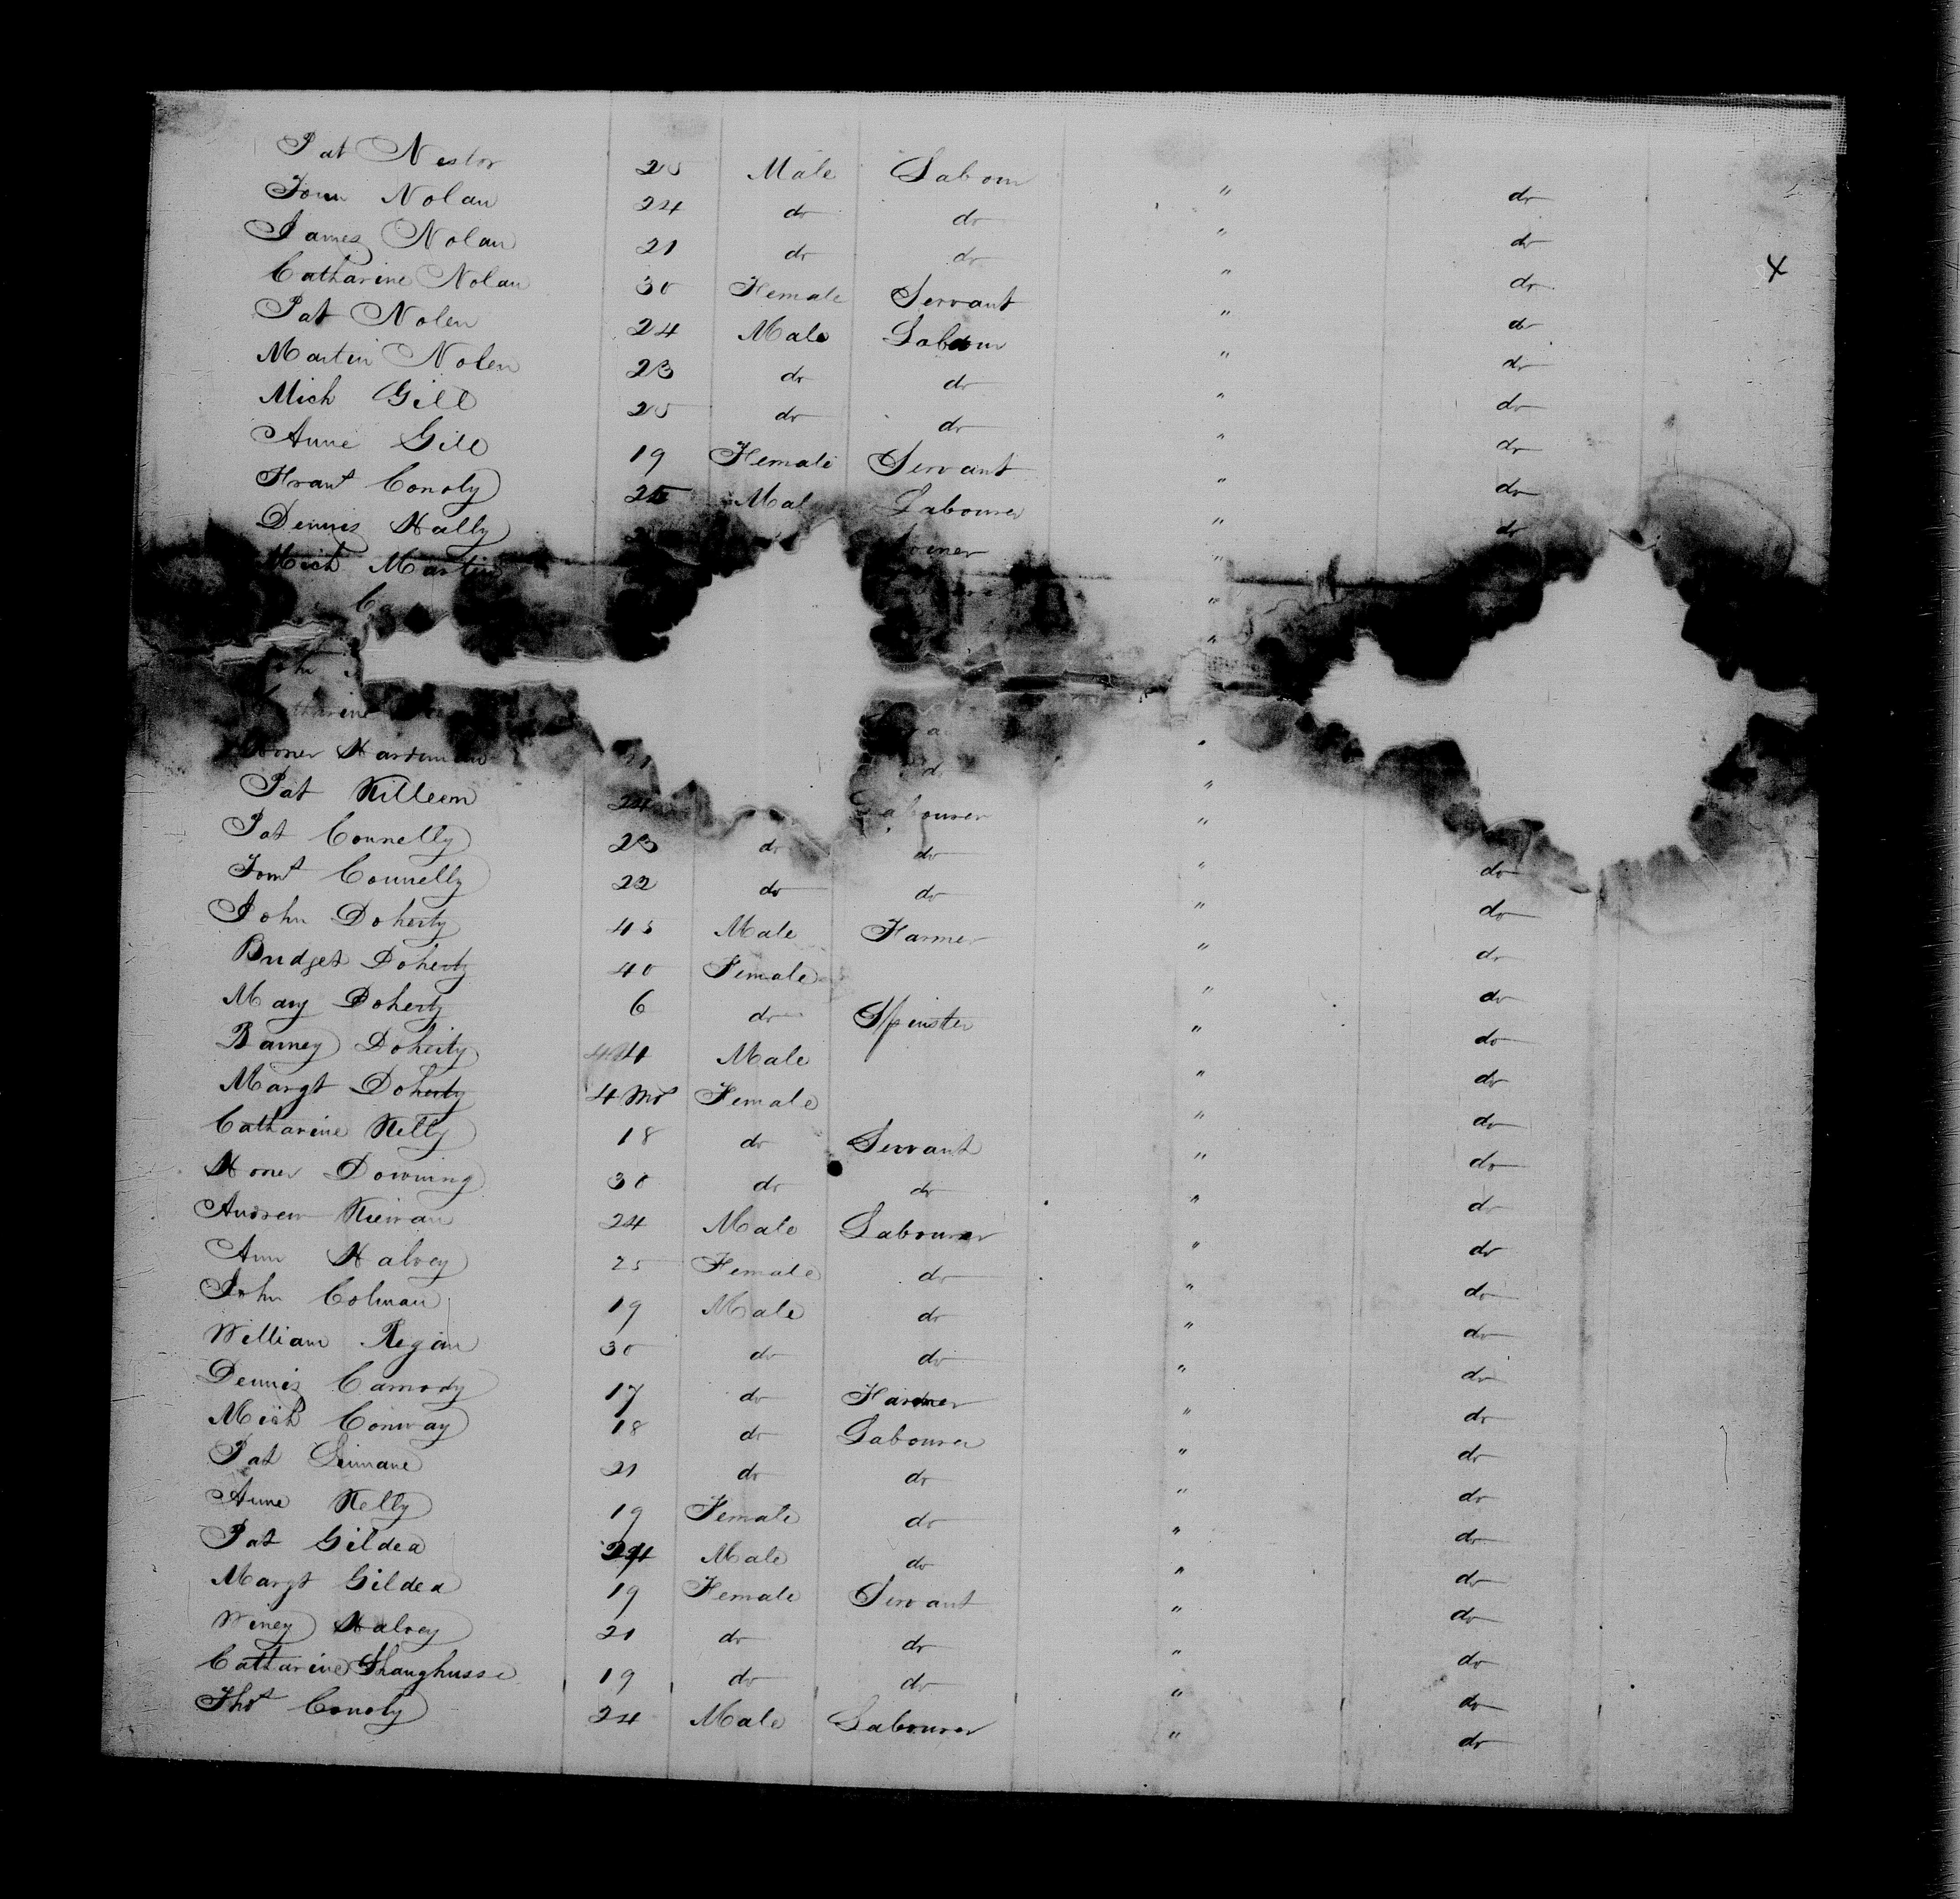 4
Pat Nestor 20 Male Labour " do
John Nolan 24 do do " do
James Nolan 21 do do " do
Catharine Nolan 30 Female Servant " do
Pat Nolen 24 Male Labour " do
Martin Nolen 23 do do " do
Mich Gill 20 do do " do
Anne Gill 19 Female Servant " do
Conoly 25 Mal Labourer " do
Dennis Hally "
Mich Martin "
"
Catharine
Honer "
Pat Killeen 24 Labourer "
Pat Connelly 23 do do " do
Connelly 22 do do " do
John Doherty 45 Male Farmer " do
Bridget Doherty 40 Female " do
Mary Doherty 6 do Spinster " do
Barney Doherty 4 Male " do
Margt Doherty 4 Mos Female " do
Catharine Kelly 18 do Servant " do
Honer Downing 30 do do " do
Andrew Kiervan 24 Male Labourer " do
Ann Halvey 25 Female do " do
John Colman 19 Male do " do
William Regan 30 do do " do
Dennis Camody 17 do Farmer " do
Mich Conway 18 do Labourer " do
Pat 21 do do " do
Anne Kelly 19 Female do " do
Pat Gildea 24 Male do " do
Margt Gildea 19 Female Servant " do
Winey Halvey 21 do do " do
Catharine Shaughusse 19 do do " do
Thos Conoly 24 Male Labourer " do